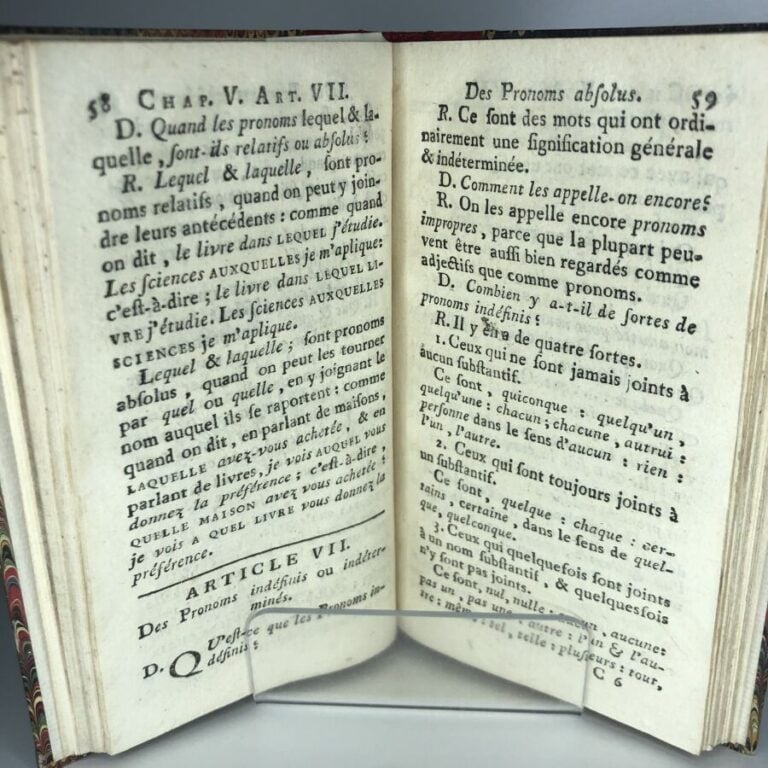 58 CHAP. V. ART. VII.
D. Quand les pronoms lequel & la-
quelle, ſont-ils relatifs ou abſolus?
R. Lequel & laquelle, ſont pro-
noms relatifs, quand on peut y join-
dre leurs antécédents : comme quand
on dit, le livre dans LEQUEL j'étudie.
Les ſciences AUXQUELLES je m'aplique:
c'eſt-à-dire ; le livre dans LEQUEL LI-
VRE j'étudie. Les ſciences AUXQUELLES
SCIENCES je m'aplique.
Lequel & laquelle ; ſont pronoms
abſolus, quand on peut les tourner
par quel ou quelle, en y joignant le
nom auquel ils ſe raportent : comme
quand on dit, en parlant de maiſons,
LAQUELLE avez-vous achetée, & en
parlant de livres, je vois AUQUEL vous
donnez la préférence ; c'eſt-à-dire,
QUELLE MAISON avez-vous achetée ;
je vois A QUEL LIVRE vous donnez la
préférence.
ARTICLE VII.
Des Pronoms indéfinis ou indéter-
minés.
D. QU'eſt-ce que les Pronoms in-
définis?
Des Pronoms abſolus. 59
R. Ce ſont des mots qui ont ordi-
nairement une ſignification générale
& indéterminée.
D. Comment les appelle-on encore?
R. On les appelle encore pronoms
impropres, parce que la plupart peu-
vent être auſſi bien regardés comme
adjectifs que comme pronoms.
D. Combien y a-t-il de ſortes de
pronoms indéfinis?
R. Il y en a de quatre ſortes.
1. Ceux qui ne ſont jamais joints à
aucun ſubſtantif.
Ce ſont, quiconque : quelqu'un,
quelqu'une : chacun ; chacune, autrui :
perſonne dans le ſens d'aucun : rien :
l'un, l'autre.
2. Ceux qui ſont toujours joints à
un ſubſtantif.
Ce ſont, quelque : chaque : cer-
tains, certaine, dans le ſens de quel-
que, quelconque.
3. Ceux qui quelquefois ſont joints
à un nom ſubſtantif, & quelquesfois
n'y ſont pas joints.
Ce ſont, nul, nulle : aucun, aucune:
pas un, pas une : autre : l'un & l'au-
tre : même : tel, telle : pluſieurs : tout,
C 6